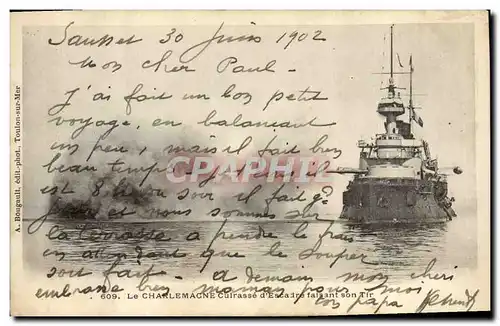 Sauset 30 Juin 1902
Mon cher Paul -
J'ai fait un bon petit
voyage, en balançant
un peu, mais il fait bien
beau temps
CPHPC
est 8h du soir il fait
et nous sommes sur
la terrasse à prendre le frais
en attendant que le souper
soit fait - à demain mon cheri
embrasse bien maman pour moi
ton papa
609. LE CHARLEMAGNE Cuirassé d'Escadre faisant son Tir
A. Bougault, édit.-phot., Toulon-sur-Mer